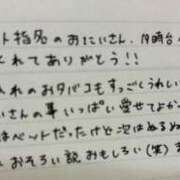 ト指名のおにいさん、19時台
くれてありがとう!!
入れのおタバコもすっごくうれしい
さんの事いっぱい愛せてよか
はベットだったけど次はぬるぬ
おそろい説おもしろい(笑)ま